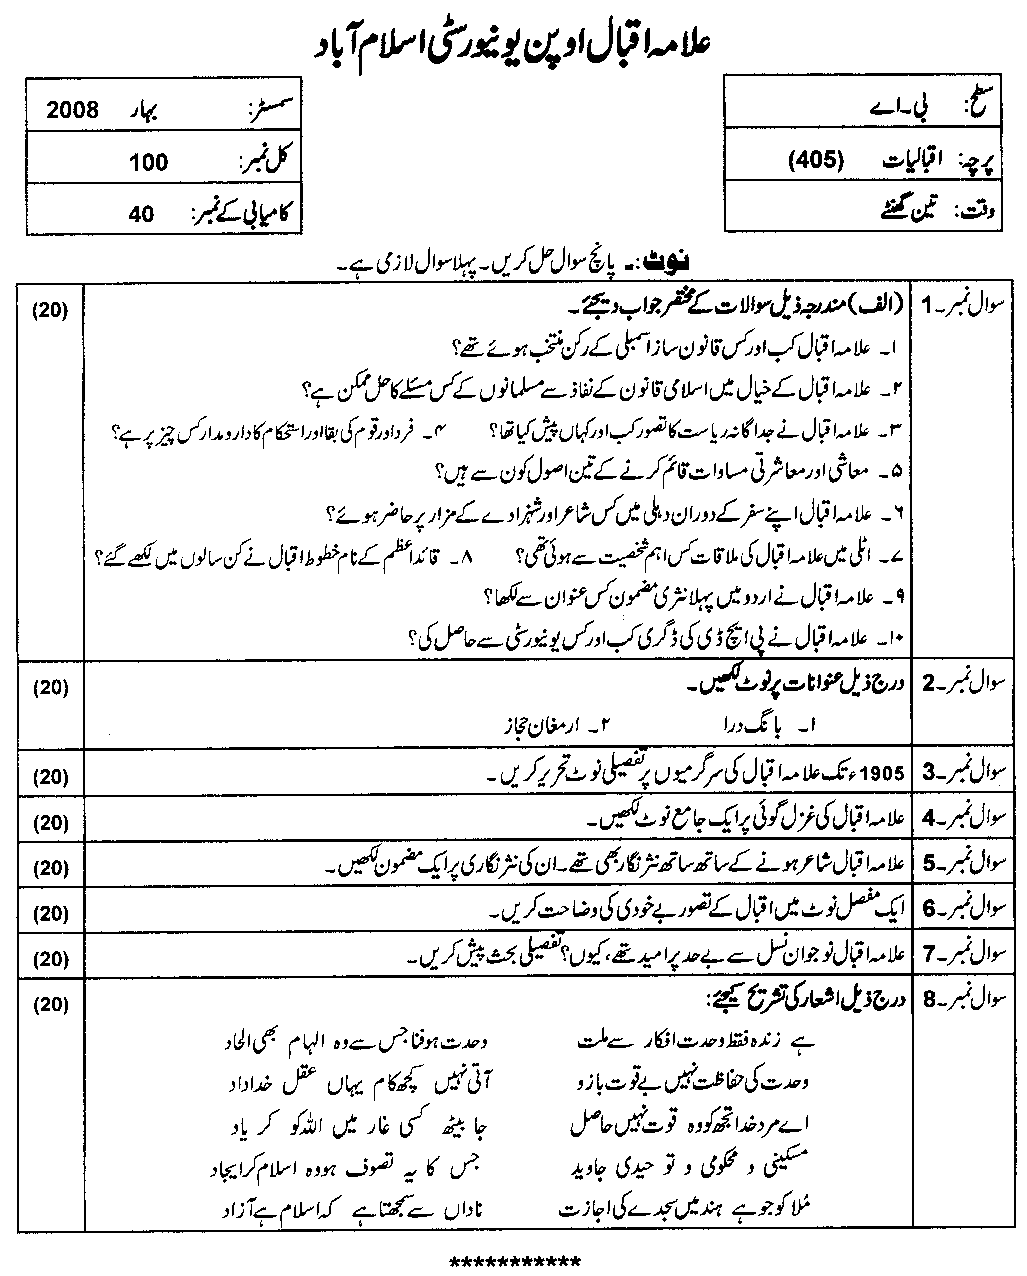 علامہ اقبال اوپن یونیورسٹی اسلام آباد
سطح: بی۔اے
سمسٹر: بہار 2008
پرچہ: اقبالیات (405)
کل نمبر: 100
وقت: تین گھنٹے
کامیابی کے نمبر: 40
نوٹ:۔ پانچ سوال حل کریں۔ پہلا سوال لازمی ہے۔
سوال نمبر۔1 (الف) مندرجہ ذیل سوالات کے مختصر جواب دیجئے۔ (20)
۱۔ علامہ اقبال کب اور کس قانون ساز اسمبلی کے رکن منتخب ہوئے تھے؟
۲۔ علامہ اقبال کے خیال میں اسلامی قانون کے نفاذ سے مسلمانوں کے کس مسئلے کا حل ممکن ہے؟
۳۔ علامہ اقبال نے جداگانہ ریاست کا تصور کب اور کہاں پیش کیا تھا؟ ۴۔ فرد اور قوم کی بقا اور استحکام کا دارومدار کس چیز پر ہے؟
۵۔ معاشی اور معاشرتی مساوات قائم کرنے کے تین اصول کون سے ہیں؟
۶۔ علامہ اقبال اپنے سفر کے دوران دہلی میں کس شاعر اور شہزادے کے مزار پر حاضر ہوئے؟
۷۔ اٹلی میں علامہ اقبال کی ملاقات کس اہم شخصیت سے ہوئی تھی؟ ۸۔ قائداعظم کے نام خطوط اقبال نے کن سالوں میں لکھے گئے؟
۹۔ علامہ اقبال نے اردو میں پہلا نثری مضمون کس عنوان سے لکھا؟
۱۰۔ علامہ اقبال نے پی ایچ ڈی کی ڈگری کب اور کس یونیورسٹی سے حاصل کی؟
سوال نمبر۔2 درج ذیل عنوانات پر نوٹ لکھیں۔ (20)
۱۔ بانگ درا ۲۔ ارمغان حجاز
سوال نمبر۔3 1905ء تک علامہ اقبال کی سرگرمیوں پر تفصیلی نوٹ تحریر کریں۔ (20)
سوال نمبر۔4 علامہ اقبال کی غزل گوئی پر ایک جامع نوٹ لکھیں۔ (20)
سوال نمبر۔5 علامہ اقبال شاعر ہونے کے ساتھ ساتھ نثر نگار بھی تھے۔ ان کی نثر نگاری پر ایک مضمون لکھیں۔ (20)
سوال نمبر۔6 ایک مفصل نوٹ میں اقبال کے تصور بے خودی کی وضاحت کریں۔ (20)
سوال نمبر۔7 علامہ اقبال نوجوان نسل سے بے حد پرامید تھے، کیوں؟ تفصیلی بحث پیش کریں۔ (20)
سوال نمبر۔8 درج ذیل اشعار کی تشریح کیجئے: (20)
ہے زندہ فقط وحدت افکار سے ملت وحدت ہو فنا جس سے وہ الہام بھی الحاد
وحدت کی حفاظت نہیں بے قوت بازو آتی نہیں کچھ کام یہاں عقل خداداد
اے مرد خدا تجھ کو وہ قوت نہیں حاصل جا بیٹھ کسی غار میں اللہ کو کر یاد
مسکینی و محکومی و نو حیدی جاوید جس کا یہ تصوف ہو وہ اسلام کر ایجاد
مُلا کو جو ہے ہند میں سجدے کی اجازت ناداں یہ سمجھتا ہے کہ اسلام ہے آزاد
***********